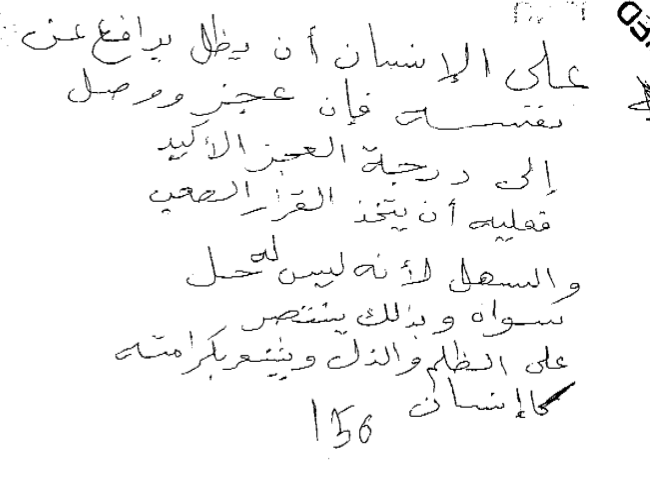 على الإنسان أن يظل يدافع عن
نفسه فإن عجز ووصل
إلى درجة العجز الأكيد
فعليه أن يتخذ القرار الصعب
والسهل لأنه ليس له حل
سواه وبذلك ينتصر
على الظلم والذل ويشعر بكرامته
كاإنسان
156